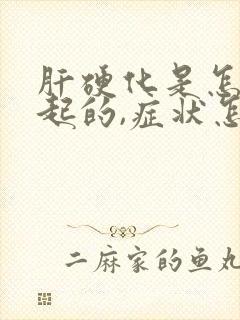 肝硬化是怎
起的,症状怎
二麻家的鱼丸